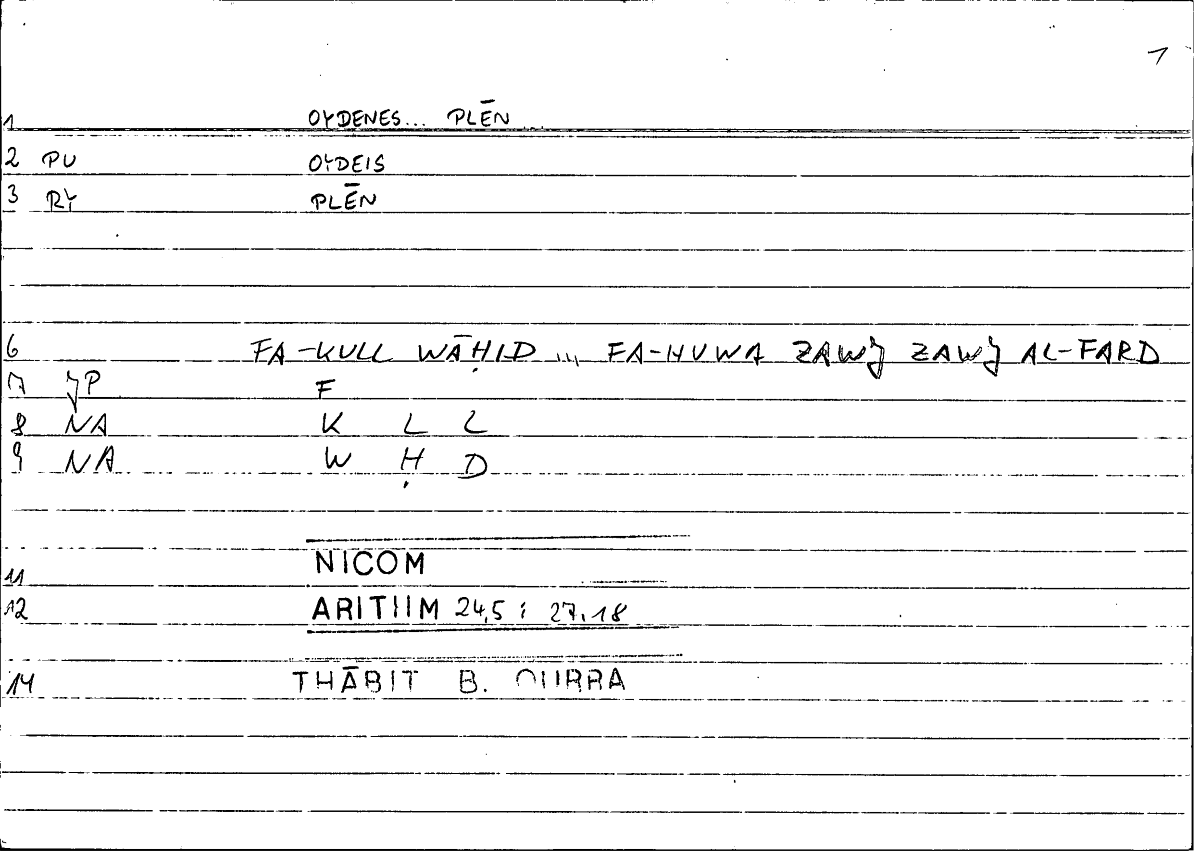 1
1 OYDENES... PLĒN ...
2 PU OYDEIS
3 RY PLĒN
6 FA-KULL WĀḤID ... FA-HUWA ZAWJ ZAWJ AL-FARD
7 JP F
8 NA K L L
9 NA W Ḥ D
11 NICOM
12 ARITHM 24,5 ; 27,18
14 THĀBIT B. QURRA